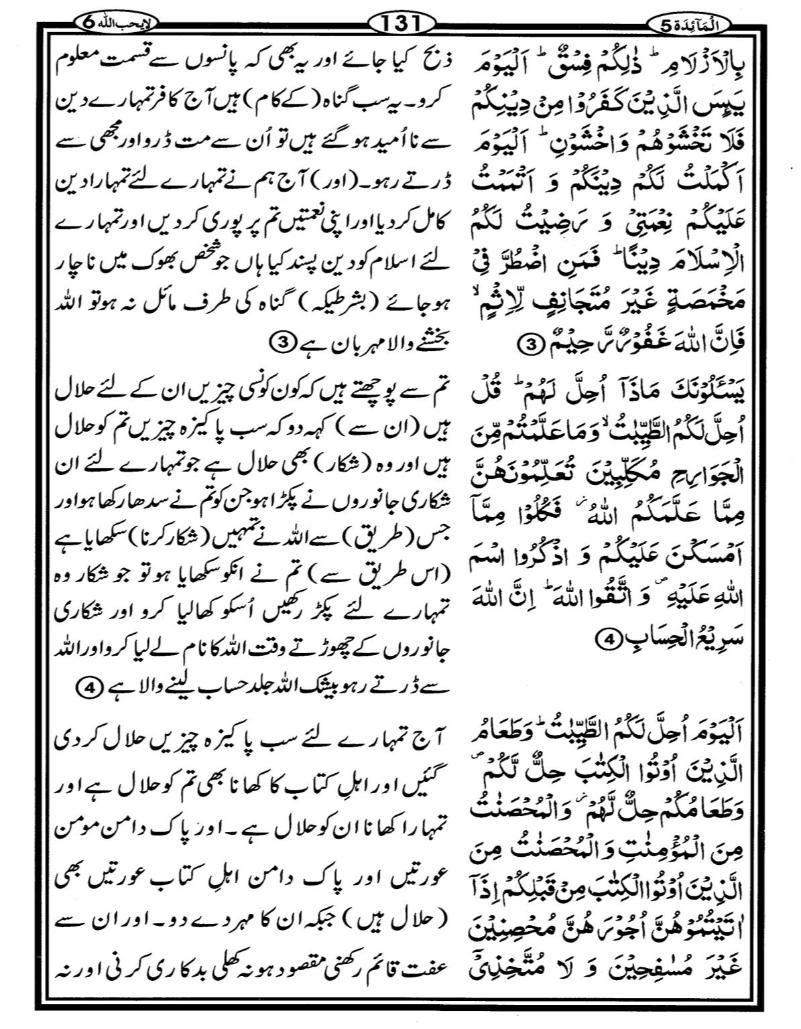 اَلْمَآئِدَة 5
131
لايحب الله 6
بِالْاَزْلَامِ ؕ ذٰلِكُمْ فِسْقٌ ؕ اَلْيَوْمَ
يَىِٕسَ الَّذِيْنَ كَفَرُوْا مِنْ دِيْنِكُمْ
فَلَا تَخْشَوْهُمْ وَاخْشَوْنِ ؕ اَلْيَوْمَ
اَكْمَلْتُ لَكُمْ دِيْنَكُمْ وَ اَتْمَمْتُ
عَلَيْكُمْ نِعْمَتِيْ وَ رَضِيْتُ لَكُمُ
الْاِسْلَامَ دِيْنًا ؕ فَمَنِ اضْطُرَّ فِيْ
مَخْمَصَةٍ غَيْرَ مُتَجَانِفٍ لِّاِثْمٍ ۙ
فَاِنَّ اللهَ غَفُوْرٌ رَّحِيْمٌ 3
يَسْـَٔلُوْنَكَ مَاذَاۤ اُحِلَّ لَهُمْ ؕ قُلْ
اُحِلَّ لَكُمُ الطَّيِّبٰتُ ۙ وَمَا عَلَّمْتُمْ مِّنَ
الْجَوَارِحِ مُكَلِّبِيْنَ تُعَلِّمُوْنَهُنَّ
مِمَّا عَلَّمَكُمُ اللهُ ؗ فَكُلُوْا مِمَّاۤ
اَمْسَكْنَ عَلَيْكُمْ وَ اذْكُرُوا اسْمَ
اللهِ عَلَيْهِ ۪ وَ اتَّقُوا اللهَ ؕ اِنَّ اللهَ
سَرِيْعُ الْحِسَابِ 4
اَلْيَوْمَ اُحِلَّ لَكُمُ الطَّيِّبٰتُ ؕ وَطَعَامُ
الَّذِيْنَ اُوْتُوا الْكِتٰبَ حِلٌّ لَّكُمْ ۪
وَطَعَامُكُمْ حِلٌّ لَّهُمْ ؗ وَالْمُحْصَنٰتُ
مِنَ الْمُؤْمِنٰتِ وَالْمُحْصَنٰتُ مِنَ
الَّذِيْنَ اُوْتُوا الْكِتٰبَ مِنْ قَبْلِكُمْ اِذَاۤ
اٰتَيْتُمُوْهُنَّ اُجُوْرَهُنَّ مُحْصِنِيْنَ
غَيْرَ مُسٰفِحِيْنَ وَ لَا مُتَّخِذِيْۤ
ذبح کیا جائے اور یہ بھی کہ پانسوں سے قسمت معلوم
کرو۔ یہ سب گناہ (کے کام) ہیں آج کافر تمہارے دین
سے نااُمید ہوگئے ہیں تو اُن سے مت ڈرو اور مجھی سے
ڈرتے رہو۔ (اور) آج ہم نے تمہارے لئے تمہارا دین
کامل کردیا اور اپنی نعمتیں تم پر پوری کردیں اور تمہارے
لئے اسلام کو دین پسند کیا ہاں جو شخص بھوک میں ناچار
ہوجائے (بشرطیکہ) گناہ کی طرف مائل نہ ہو تو اللہ
بخشنے والا مہربان ہے 3
تم سے پوچھتے ہیں کہ کون کونسی چیزیں ان کے لئے حلال
ہیں (ان سے) کہہ دو کہ سب پاکیزہ چیزیں تم کو حلال
ہیں اور وہ (شکار) بھی حلال ہے جو تمہارے لئے ان
شکاری جانوروں نے پکڑا ہو جن کو تم نے سدھا رکھا ہو اور
جس (طریق) سے اللہ نے تمہیں (شکار کرنا) سکھایا ہے
(اس طریق سے) تم نے انکو سکھایا ہو تو جو شکار وہ
تمہارے لئے پکڑ رکھیں اُسکو کھالیا کرو اور شکاری
جانوروں کے چھوڑتے وقت اللہ کا نام لے لیا کرو اور اللہ
سے ڈرتے رہو بیشک اللہ جلد حساب لینے والا ہے 4
آج تمہارے لئے سب پاکیزہ چیزیں حلال کردی
گئیں اور اہلِ کتاب کا کھانا بھی تم کو حلال ہے اور
تمہارا کھانا ان کو حلال ہے ۔ اور پاک دامن مومن
عورتیں اور پاک دامن اہلِ کتاب عورتیں بھی
(حلال ہیں) جبکہ ان کا مہر دے دو۔ اور ان سے
عفت قائم رکھنی مقصود ہو نہ کھلی بدکاری کرنی اور نہ